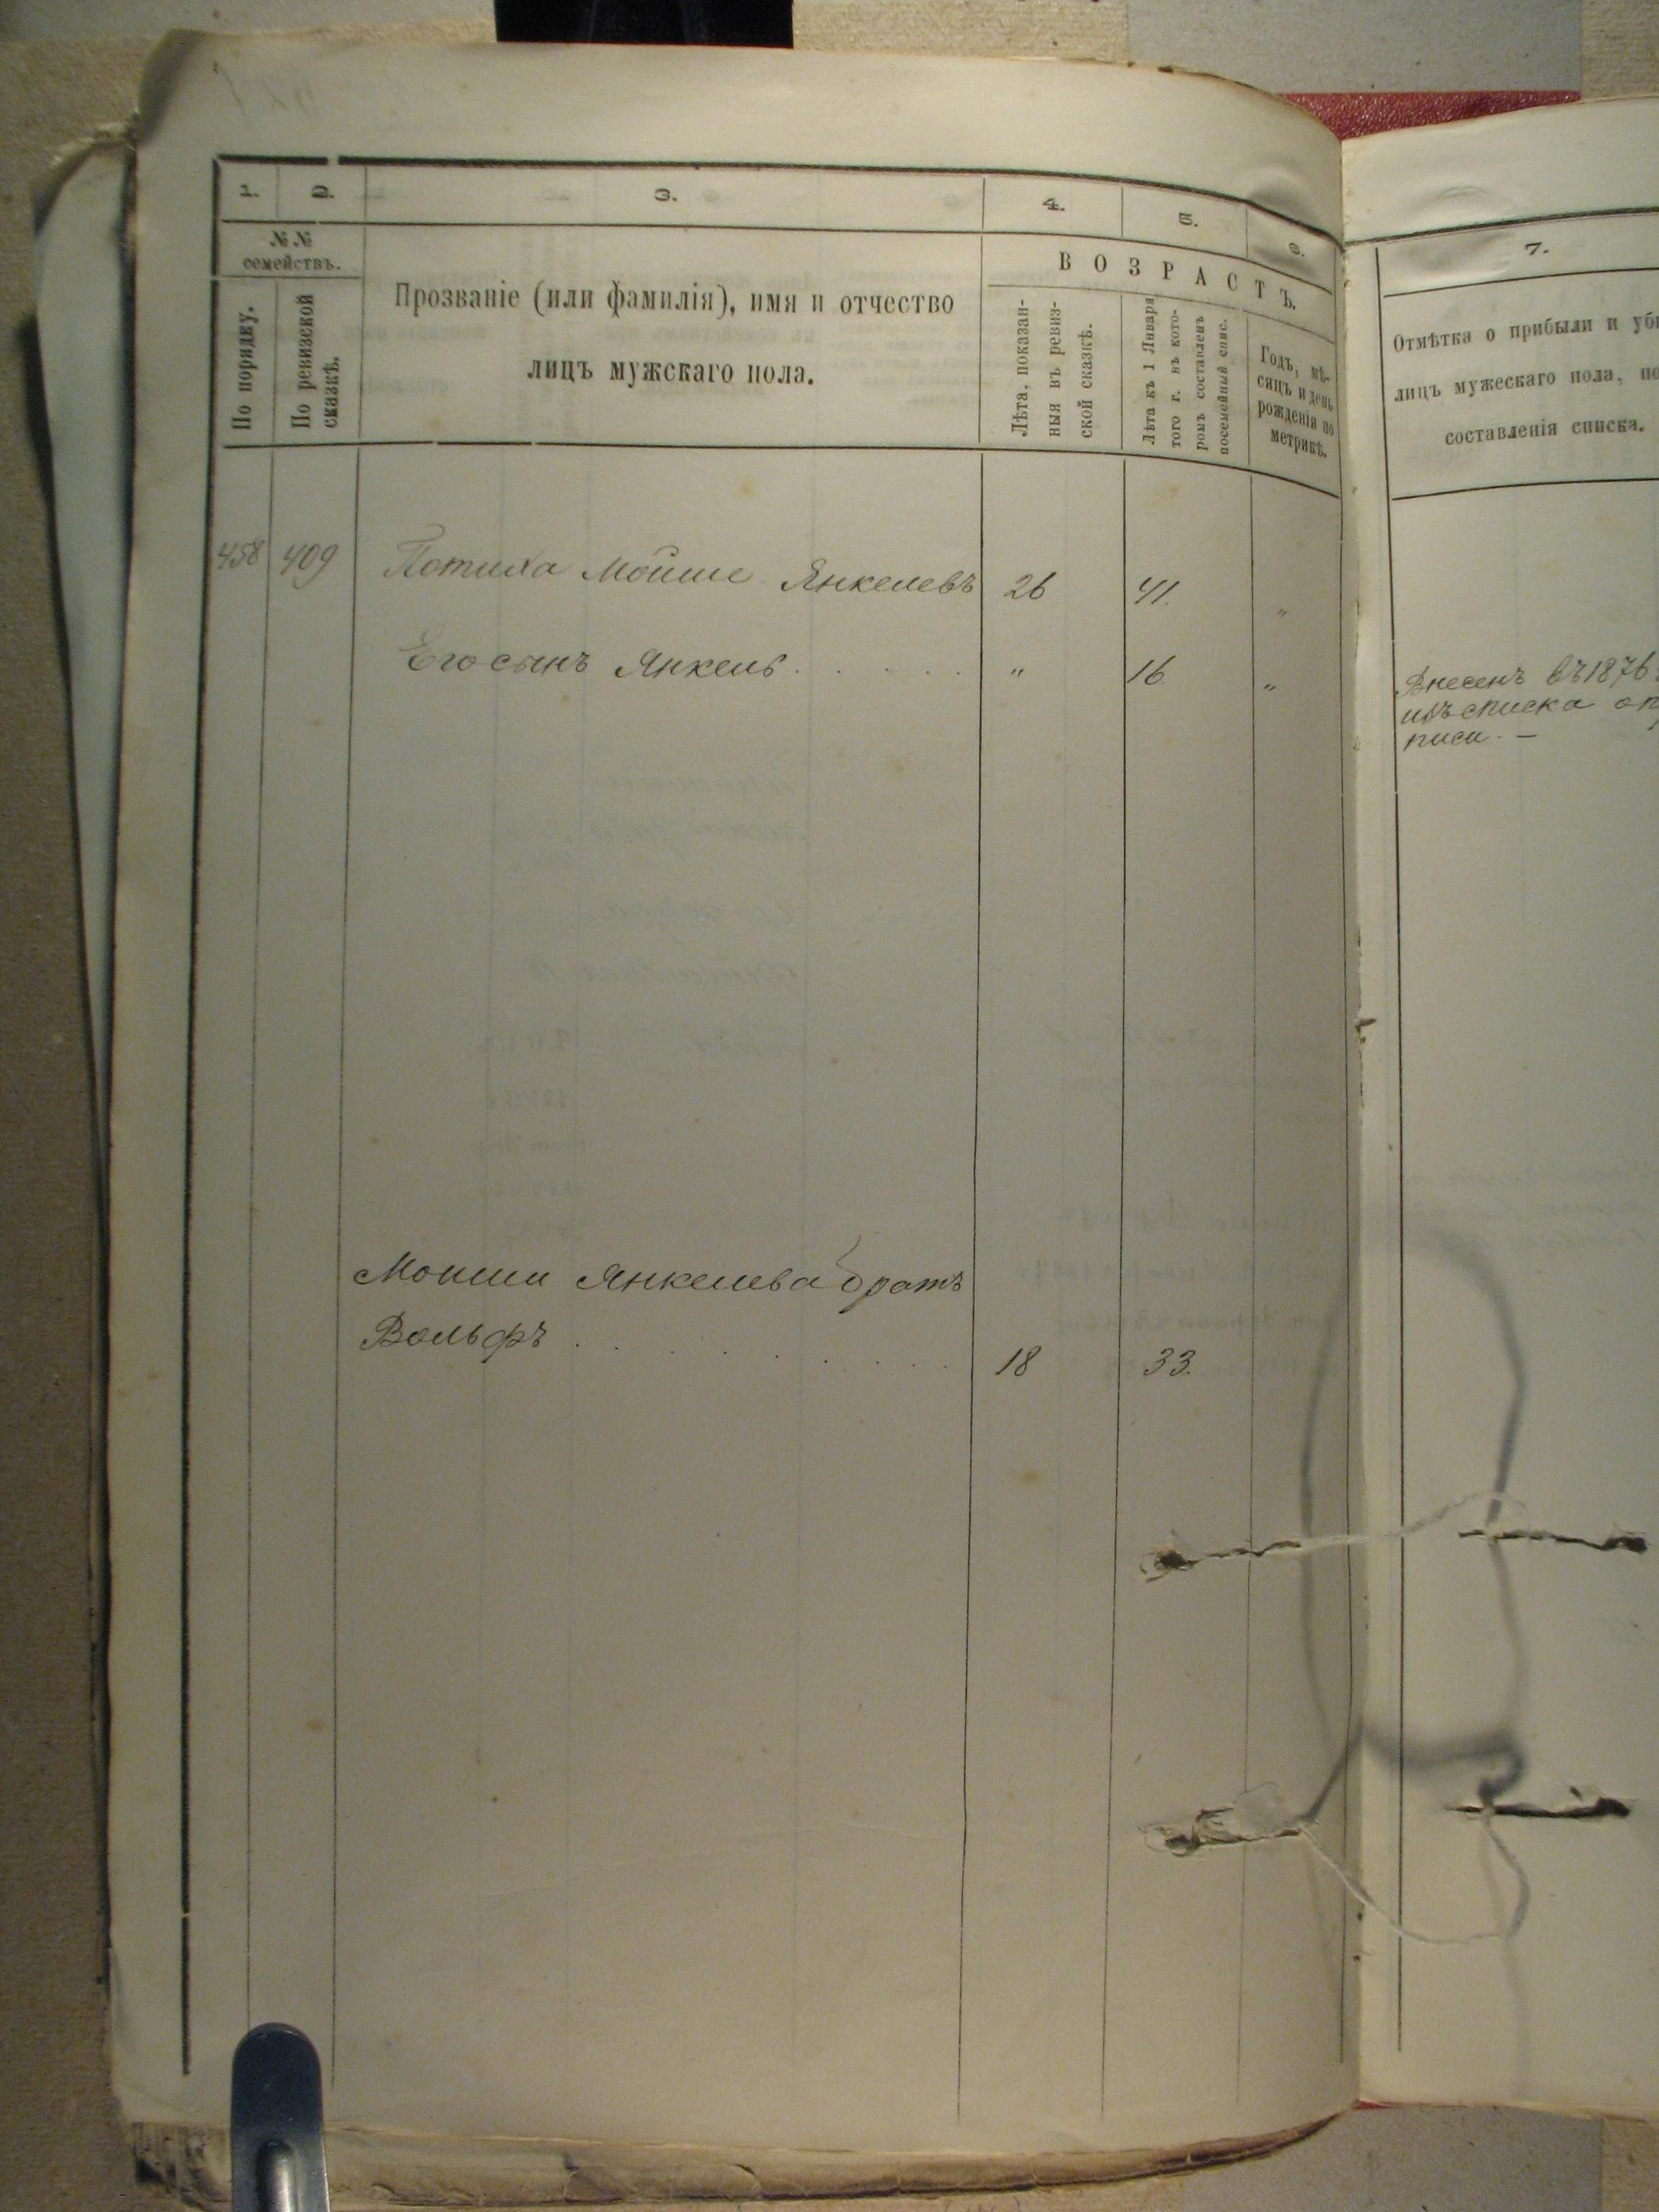 1. 2. 3. 4. 5. 6. 7.
№№ семействъ.
По порядку.
По ревизской сказкѣ.
Прозваніе (или фамилія), имя и отчество
лицъ мужскаго пола.
ВОЗРАСТЪ.
Лѣта, показан-
ныя въ ревиз-
ской сказкѣ.
Лѣта къ 1 Января
того г. въ кото-
ромъ составленъ
посемейный спис.
Годъ, мѣ-
сяцъ и день
рожденія по
метрикѣ.
Отмѣтка о прибыли и
лицъ мужескаго пола,
составленія списка.
458 409 Потиха Мойше Янкелевъ 26 41. „
Его сынъ Янкель . . . . . „ 16 „
Внесенъ въ 1876
изъ списка
писи. —
Мошки Янкелева братъ
Вольфъ . . . . . . . . 18 33.